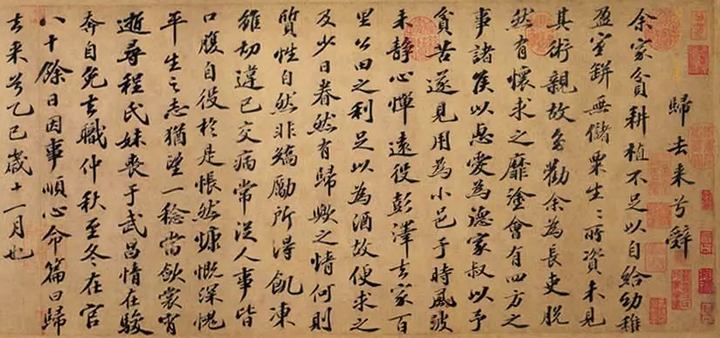 歸去来兮辭
余家貧耕植不足以自給幼稚
盈室缾無儲粟生々所資未見
其術親故多勸余為長吏脱
然有懷求之靡塗會有四方之
事諸侯以惠愛為德家叔以予
貧苦遂見用為小邑于時風波
未静心憚遠役彭澤去家百
里公田之利足以為酒故便求之
及少日眷然有歸歟之情何則
質性自然非矯勵所得飢凍
雖切違已交病常從人事皆
口腹自役於是悵然慷慨深愧
平生之志猶望一稔當斂裳宵
逝尋程氏妹喪于武昌情在駿
奔自免去職仲秋至冬在官
八十餘日因事順心命篇曰歸
去来兮乙巳歲十一月也